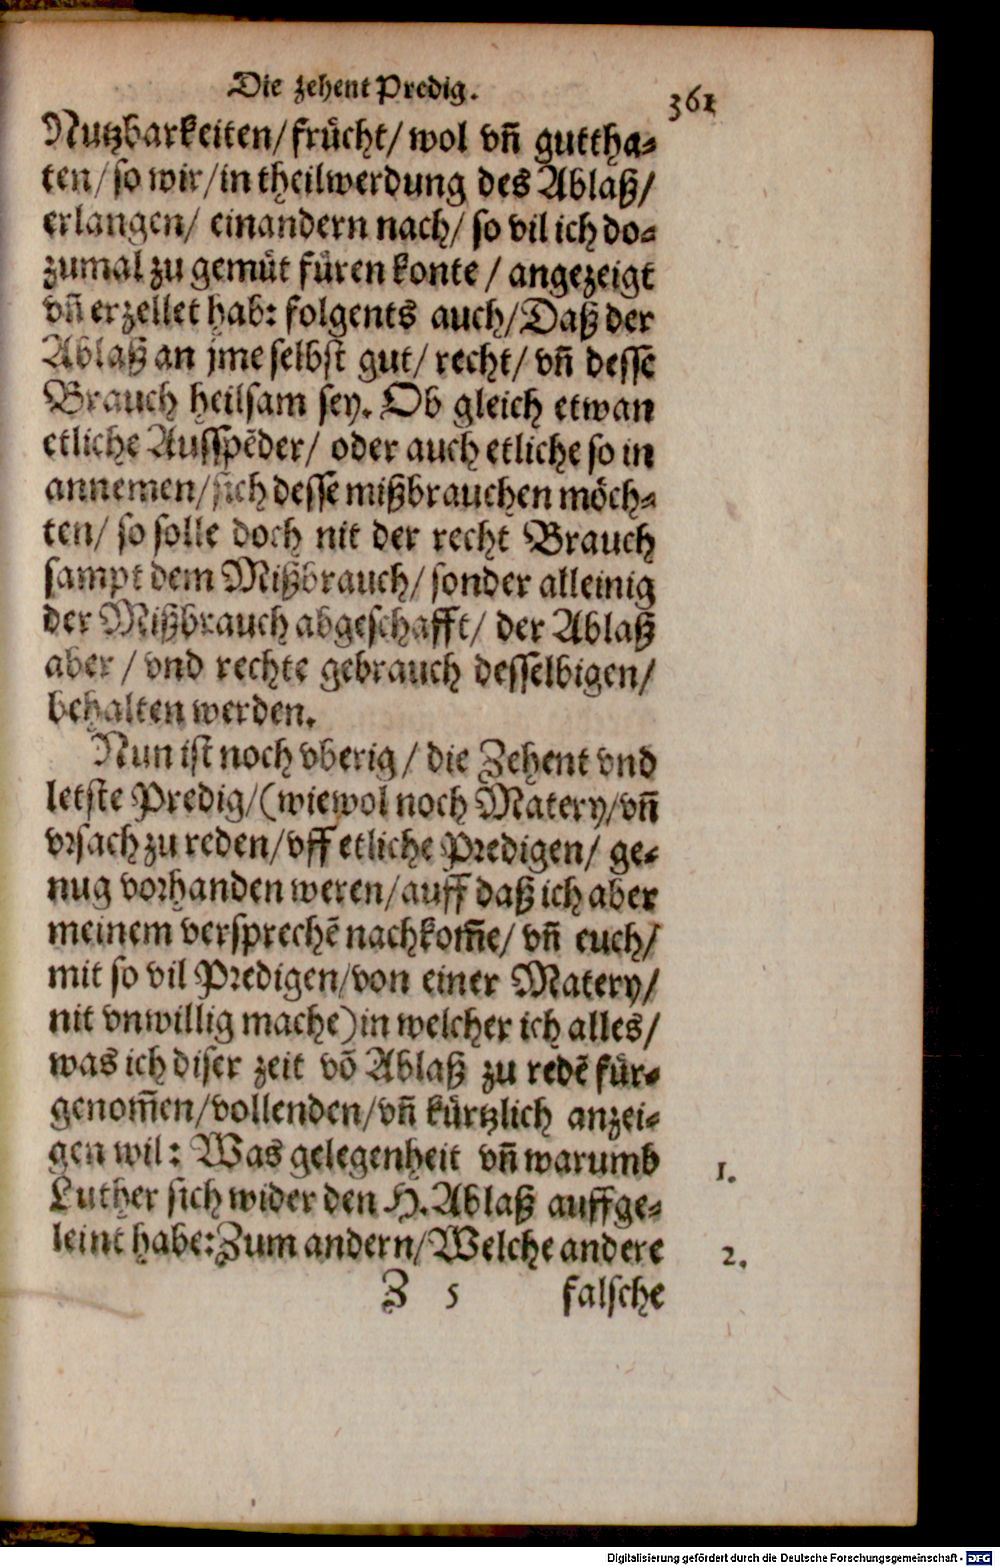 Die zehent Predig.
361
Nutzbarkeiten/ frücht/ wol vñ guttha-
ten/ so wir/ in theilwerdung des Ablaß/
erlangen/ einandern nach/ so vil ich do-
zumal zu gemüt füren konte/ angezeigt
vñ erzellet hab: folgents auch/ Daß der
Ablaß an jme selbst gut/ recht/ vñ dessẽ
Brauch heilsam sey. Ob gleich etwan
etliche Ausspẽder/ oder auch etliche so in
annemen/ sich dessẽ mißbrauchen möch-
ten/ so solle doch nit der recht Brauch
sampt dem Mißbrauch/ sonder alleinig
der Mißbrauch abgeschafft/ der Ablaß
aber/ vnd rechte gebrauch desselbigen/
behalten werden.
Nun ist noch vberig/ die Zehent vnd
letste Predig/ (wiewol noch Matery/ vñ
vrsach zu reden/ vff etliche Predigen/ ge-
nug vorhanden weren/ auff daß ich aber
meinem versprechẽ nachkom̃e/ vñ euch/
mit so vil Predigen/ von einer Matery/
nit vnwillig mache) in welcher ich alles/
was ich diser zeit võ Ablaß zu redẽ für-
genom̃en/ vollenden/ vñ kürtzlich anzei-
gen wil: Was gelegenheit vñ warumb
1.
Luther sich wider den H. Ablaß auffge-
leint habe: Zum andern/ Welche andere
2.
Z 5 falsche
Digitalisierung gefördert durch die Deutsche Forschungsgemeinschaft - DFG